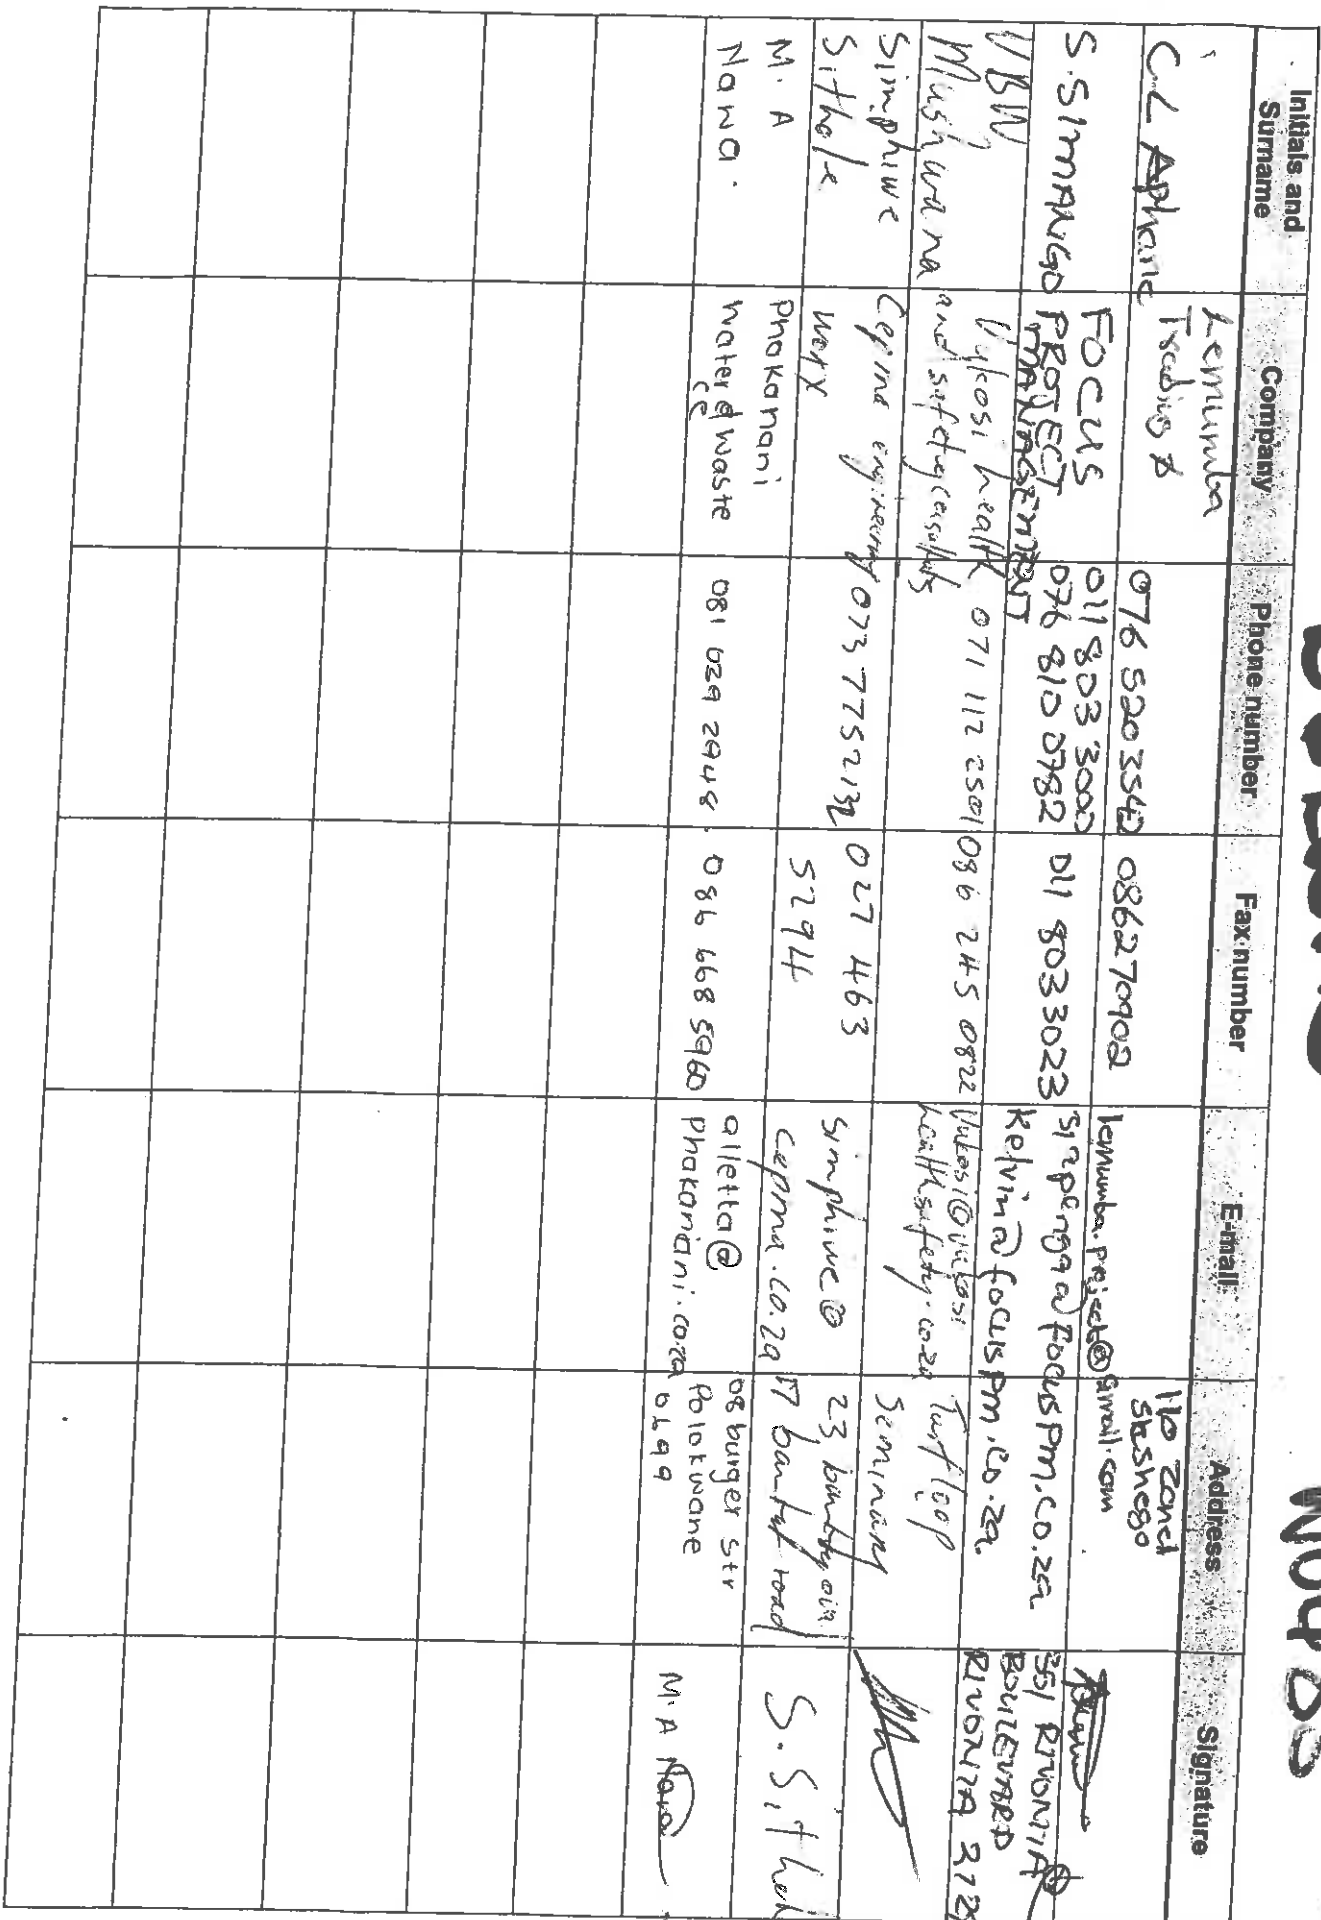 Initials and Surname
Company
Phone number
Fax number
E-mail
Address
Signature
C.L Aphane
Lemumba
Trading &
076 5203540
086270902
lemumba.project@gmail.com
110 Zone1
Seshego
S. SIMANGO
FOCUS
PROJECT
MANAGEMENT
011 803 3000
076 810 0782
011 803 3023
Kelvin@focuspm.co.za.
351 RIVONIA
BOULEVARD
RIVONIA
VBW
Mashwana
Vukosi health
and safety
071 112 2501
086 245 0822
healthsafety.co.za
Turfloop
Seminary
Simphiwe
Sithole
Cepma engineering
worx
073 7752132
027 463
5294
simphiwe@
cepma.co.za
17 road
S. Sithole
M. A
Nawa.
Phakanani
water & waste
ce
081 029 2948
086 668 5960
alletta@
phakanani.co.za
08 burger str
Polokwane
0699
M.A Nawa